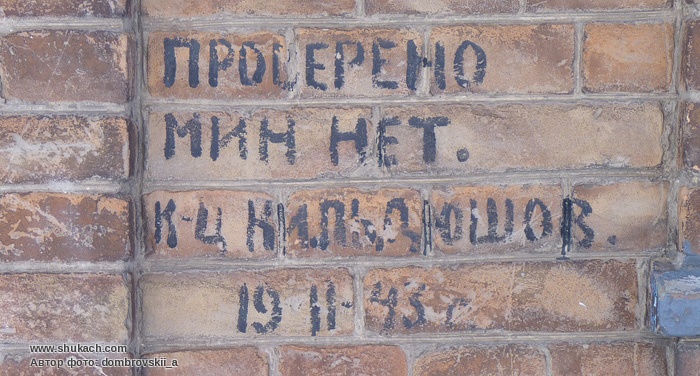 ПРОВЕРЕНО
МИН НЕТ.
К-Ц КИЛЬДЮШОВ.
19 11-43 г.
www.shukach.com
Автор фото: dombrovskii_a